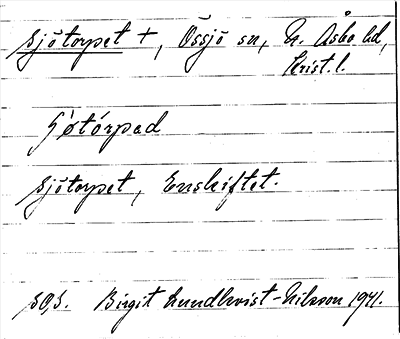 Sjötorpet +, Össjö sn, N. Åsbo hd,
Krist. l.
sjötorpet, Enskiftet.
SO,S. Birgit Lundkvist-Nilsson 1941.